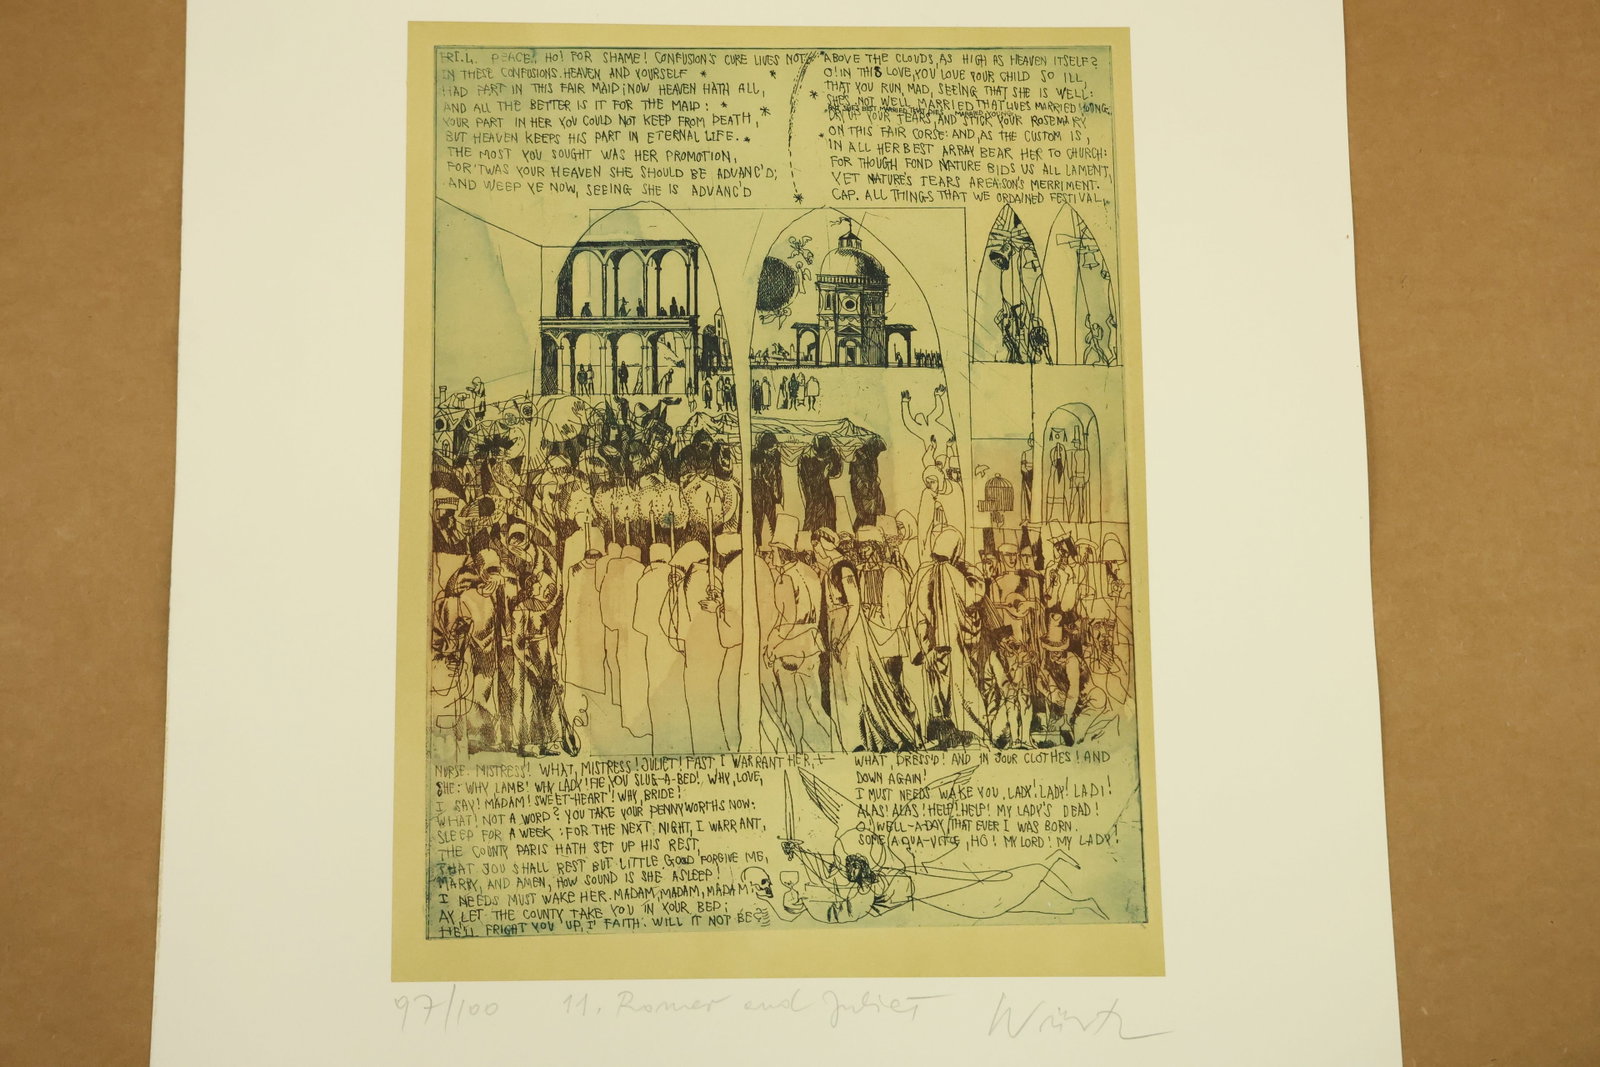 FRI.L. PEACE, HO! FOR SHAME! CONFUSION'S CURE LIVES NOT
IN THESE CONFUSIONS. HEAVEN AND YOURSELF
HAD PART IN THIS FAIR MAID; NOW HEAVEN HATH ALL,
AND ALL THE BETTER IS IT FOR THE MAID:
YOUR PART IN HER YOU COULD NOT KEEP FROM DEATH,
BUT HEAVEN KEEPS HIS PART IN ETERNAL LIFE.
THE MOST YOU SOUGHT WAS HER PROMOTION,
FOR 'TWAS YOUR HEAVEN SHE SHOULD BE ADVANC'D;
AND WEEP YE NOW, SEEING SHE IS ADVANC'D
ABOVE THE CLOUDS, AS HIGH AS HEAVEN ITSELF?
O! IN THIS LOVE, YOU LOVE YOUR CHILD SO ILL,
THAT YOU RUN, MAD, SEEING THAT SHE IS WELL:
SHE'S NOT WELL MARRIED THAT LIVES MARRIED YOUNG,
DRY UP YOUR TEARS, AND STICK YOUR ROSEMARY
ON THIS FAIR CORSE: AND, AS THE CUSTOM IS,
IN ALL HER BEST ARRAY BEAR HER TO CHURCH:
FOR THOUGH FOND NATURE BIDS US ALL LAMENT,
YET NATURE'S TEARS AREASON'S MERRIMENT.
CAP. ALL THINGS THAT WE ORDAINED FESTIVAL,
NURSE. MISTRESS! WHAT, MISTRESS! JULIET! FAST I WARRANT HER,
SHE: WHY, LAMB! WHY LADY! FIE, YOU SLUG-A-BED! WHY, LOVE,
I SAY! MADAM! SWEET-HEART! WHY, BRIDE!
WHAT! NOT A WORD? YOU TAKE YOUR PENNYWORTHS NOW:
SLEEP FOR A WEEK: FOR THE NEXT NIGHT, I WARRANT,
THE COUNTY PARIS HATH SET UP HIS REST,
THAT YOU SHALL REST BUT LITTLE. GOOD FORGIVE ME,
MARRY, AND AMEN, HOW SOUND IS SHE ASLEEP!
I NEEDS MUST WAKE HER. MADAM, MADAM, MADAM!
AY, LET THE COUNTY TAKE YOU IN YOUR BED;
HE'LL FRIGHT YOU UP, I' FAITH. WILL IT NOT BE?
WHAT, DRESS'D! AND IN YOUR CLOTHES! AND
DOWN AGAIN!
I MUST NEEDS WAKE YOU, LADY! LADY! LADI!
ALAS! ALAS! HELP! HELP! MY LADY'S DEAD!
O! WELL-A-DAY, THAT EVER I WAS BORN.
SOME AQUA-VITÆ, HO! MY LORD! MY LADY!
97/100 11. Romeo and Juliet